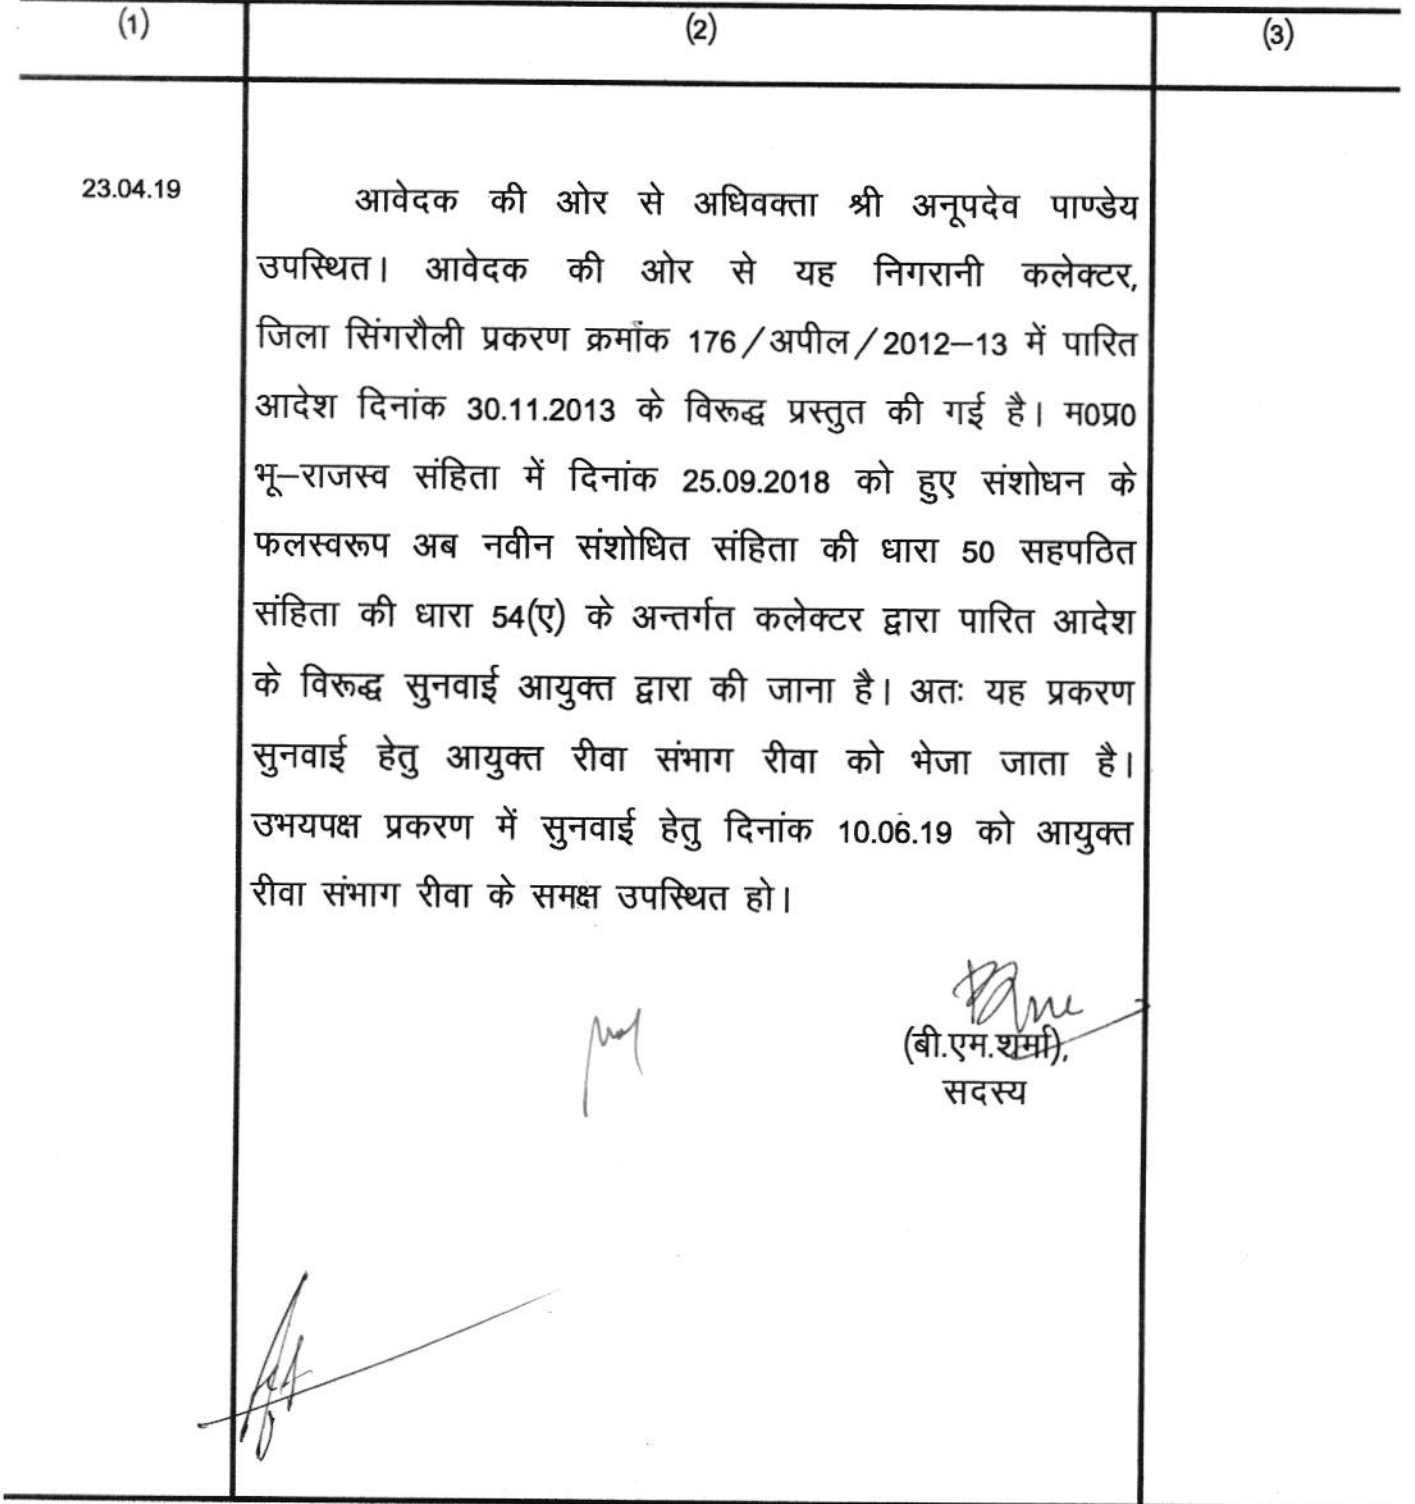 (1) (2) (3)
23.04.19
आवेदक की ओर से अधिवक्ता श्री अनूपदेव पाण्डेय
उपस्थित। आवेदक की ओर से यह निगरानी कलेक्टर,
जिला सिंगरौली प्रकरण क्रमांक 176/अपील/2012–13 में पारित
आदेश दिनांक 30.11.2013 के विरूद्ध प्रस्तुत की गई है। म0प्र0
भू–राजस्व संहिता में दिनांक 25.09.2018 को हुए संशोधन के
फलस्वरूप अब नवीन संशोधित संहिता की धारा 50 सहपठित
संहिता की धारा 54(ए) के अन्तर्गत कलेक्टर द्वारा पारित आदेश
के विरूद्ध सुनवाई आयुक्त द्वारा की जाना है। अतः यह प्रकरण
सुनवाई हेतु आयुक्त रीवा संभाग रीवा को भेजा जाता है।
उभयपक्ष प्रकरण में सुनवाई हेतु दिनांक 10.06.19 को आयुक्त
रीवा संभाग रीवा के समक्ष उपस्थित हो।
(बी.एम.शर्मा),
सदस्य